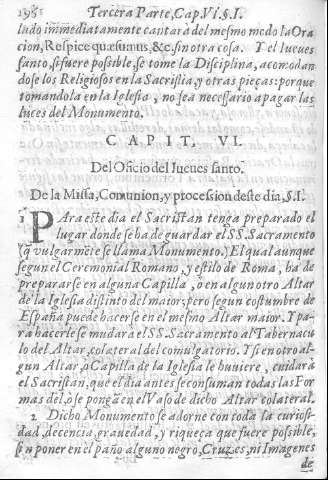 198 Tercera Parte, Cap. VI. §. I.
ludo immediatamente cantará del mesmo modo la Ora
cion, Respice quæsumus, &c. sin otra cosa. Y el Iueves
santo, si fuere possible, se tome la Disciplina, acomodan
dose los Religiosos en la Sacristia, y otras pieças: porque
tomandola en la Iglesia, no sea necessario apagar las
luces del Monumento.
CAPIT. VI.
Del Oficio del Iueves santo.
De la Missa, Comunion, y procession deste dia, §. I.
1 PAra este dia el Sacristan tenga preparado el
lugar donde se ha de guardar el SS. Sacramento
(q̃ vulgarmẽte se llama Monumento.) El qual aunque
segun el Ceremonial Romano, y estilo de Roma, ha de
prepararse en alguna Capilla, o en algun otro Altar
de la Iglesia distinto del mayor; pero segun costumbre de
España puede hacerse en el mesmo Altar maior. Y pa-
ra hacerle se mudará el SS. Sacramento al Tabernacu
lo del Altar, colateral del comulgatorio. Y si en otro al-
gun Altar, o Capilla de la Iglesia le huviere, cuidará
el Sacristan, que el dia antes se consuman todas las For
mas del, o se pongã en el Vaso de dicho Altar colateral.
2 Dicho Monumento se adorne con toda la curiosi-
dad, decencia, gravedad, y riqueça que fuere possible,
sin poner en el paño alguno negro, Cruzes, ni Imagenes
de